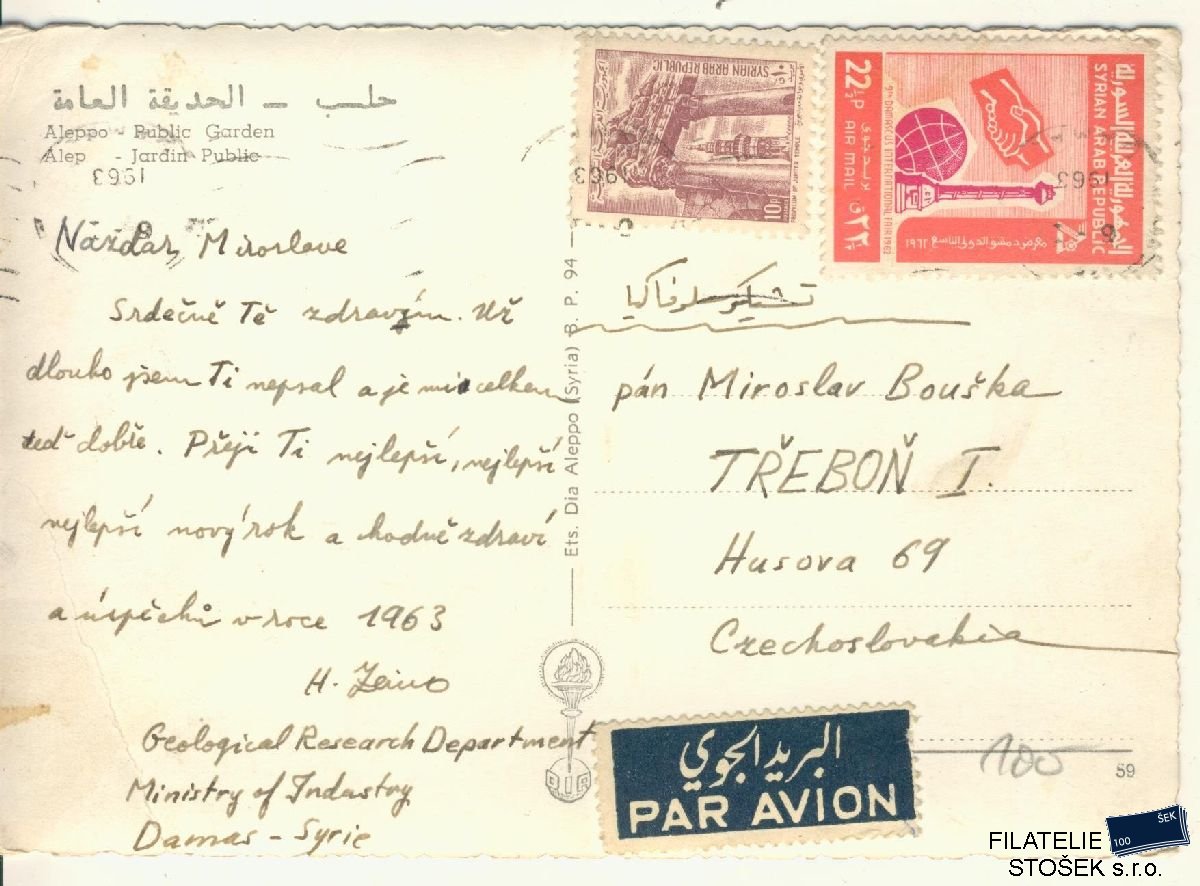 حلب - الحديقة العامة
Aleppo - Public Garden
Alep - Jardin Public
1963
Nazdar Miroslave
Srdečně Tě zdravím. Už
dlouho jsem Ti nepsal a je mi celkem
teď dobře. Přeji Ti nejlepší, nejlepší
nejlepší nový rok a hodně zdraví
a úspěchů v roce 1963
H. Zeino
Geological Research Department
Ministry of Industry
Damas - Syrie
Ets. Dia Aleppo (Syria) B. P. 94
SYRIAN ARAB REPUBLIC
10P
1963
الجمهورية العربية السورية
SYRIAN ARAB REPUBLIC
22½P AIR MAIL
9TH DAMASCUS INTERNATIONAL FAIR 1962
معرض دمشق الدولي التاسع ١٩٦٢
1963
تشيكوسلوفاكيا
pán Miroslav Bouška
TŘEBOŇ I.
Husova 69
Czechoslovakia
البريد الجوي
PAR AVION
100
59
100 ŠEK
FILATELIE
STOŠEK s.r.o.